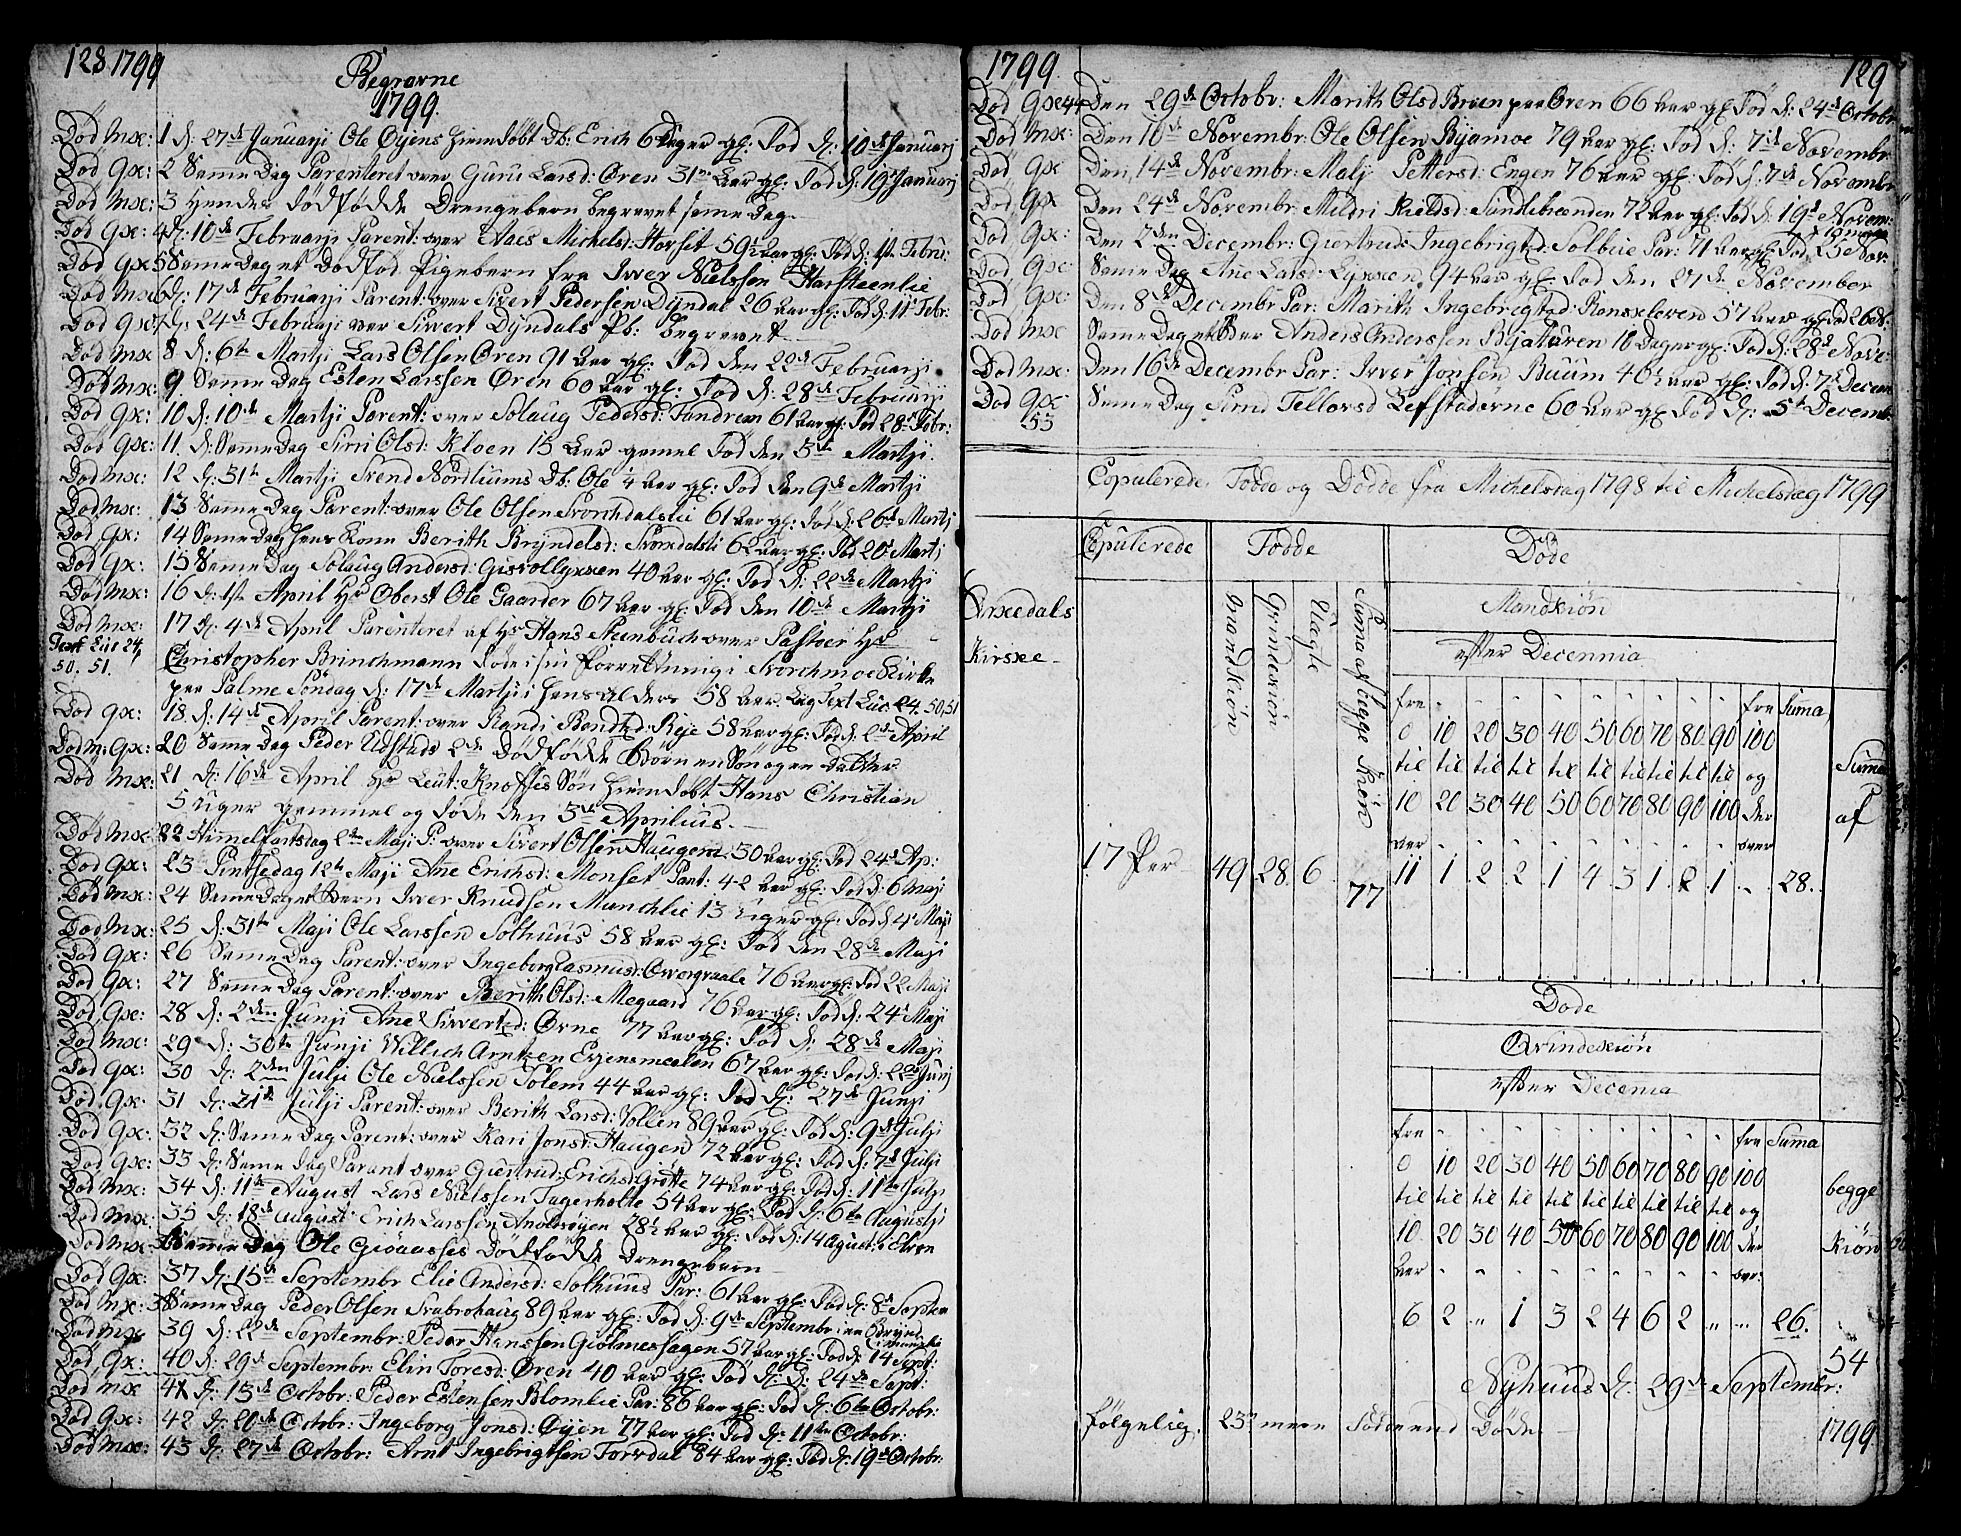 128 1799
Begravne
1799.
Død Mx: 1 d: 27de Januarji Ole Øyens hiemdøbt Db: Erich 6 Dager gl: Død d: 10de Januarj
Død Qx: 2 Samme Dag Parenteret over Guru Larsd: Øren 31 Aar gl: Død d: 19de Januarj
Død Mx: 3 Hendes dødfødde Drengebarn begravet samme Dag
Død Qx: 4 d: 10de Februarji Parent: over Michelsd: Horset 59½ Aar gl: Død d: 1ste Febru:
Død Qx 5 Samme Dag et Dødfød Pigebarn fra Iver Nielssen Harsteenlie
Død Mx 6 d: 17de Februarji Parent: over Sivert Pedersen Dyndal 26 Aar gl: Død d: 11te Febr:
Død Qx 7 d: 24de Februarji over Sivert Dyndals Pb: begravet
Død Mx 8 d: 6te Martji Lars Olsen Øren 91 Aar gl: Død den 22de Februarji
Død Mx: 9 Samme Dag Esten Larssen Øren 60 Aar gl: Død d: 28de Februarji
Død Qx: 10 d: 10de Martji Parent: over Solaug Pedersd: Fandrem 61 Aar gl: Død 28de Febr:
Død Qx: 11. d: Samme Dag Siri Olsd: Kloen 15 Aar gamel Død den 3de Martji.
Død Mx: 12 d: 31te Martji Svend Nordtuums Db: Ole 4 Aar gl: Død den 9de Martji
Død Mx: 13 Samme Dag Parent: over Ole Olsen Svorchdalslie 61 Aar gl: Død d: 26de Martj
Død Qx: 14 Samme Dag hans Kone Berith Bryndelsd: Svordalsli 62 Aar gl: Død 20de Martj
Død Qx: 15 Samme Dag Solaug Andersd: Gisvollyxxen 40 Aar gl: Død d: 22de Martji
Død Mx: 16 d: 1ste April Hr Oberst Ole Gaarder 67 Aar gl: Død den 10de Martji
Død Mx: 17 d: 4de April Parenteret af Hr Hans Steenbuch over Pastoer Hr
Text Luc 24, Christopher Brinchmann døde i sin forretning i Svorchmoe Kirke
50. 51. paa Palme Søndag d: 17de Martji i hans Alders 58 Aar. Lig Text Luc 24. 50, 51
Død Qx: 18. d: 14de April Parent: over Randi Bendtsd: Reje 58 Aar gl: Død d: 2de April
Død M: Qx: 20 Samme Dag Peder Udstads 2de Dødfødde Børn en Søn og en Datter
Død Mx: 21 d: 16de April Hr Leut: Knoffs Søn hiemdøbt Hans Christian
5 Uger gammel og døde den 3de Aprilius.
Død Mx: 22 Himmelfartsdag 2den Maji P: over Sivert Olsen Haugen 30 Aar gl: Død 24de Ap:
Død Qx: 23 Pintsedag 12te Maji Ane Erichsd: Monset Parent: 42 Aar gl: Død d: 6 Maji
Død Mx: 24 Samme Dag et Barn Iver Knudsen Munchlie 13 Uger gl: Død d: 4de Maji
Død Mx: 25 d: 31te Maji Ole Larssen Solhuus 58 Aar gl: Død den 28de Maji
Død Qx: 26 Samme Dag Parent: over Ingeborg Rasmusd: Overgraale 76 Aar gl: Død 22 Maji
Død Qx: 27 Samme Dag Parent: over Berith Olsd: Megaard 76 Aar gl: Død d: 24de Maji
Død Qx: 28 d: 2den Junji Ane Sivertsd: Ørne 77 Aar gl: Død d: 28de Maji
Død Mx: 29 d: 30te Junji Willich Arntzen Evjensmoelen 67 Aar gl: Død d: 22de Junj
Død Qx: 30 d: 2den Julji Ole Nielssen Solem 44 Aar gl: Død d: 27de Junji
Død Qx: 31 d: 21de Julji Parent: over Berith Larsd: Vollen 89 Aar gl: Død d: 9de Julji
Død Qx: 32 d: Samme Dag Parent: over Kari Jonsd: Haugen 72 Aar gl: Død d: 7de Julji
Død Qx: 33 d: Samme Dag Parent over Giertrud: Erichsd: Grøtte 74 Aar gl: Død d: 11te Julji
Død Mx: 34 d: 11te August Lars Nielssen Fagerholte 54 Aar gl: Død d: 6te Augustji
Død Mx: 35 d: 18de August Erich Larssen 28½ Aar gl: Død d: 14 Agust: i Elven
Død Mx 36 Samme Dag Ole Giøaasses Dødfødde Drengebarn
Død Qx: 37 d: 15de Septembr Elie Andersd: Solhuus Par: 61 Aar gl: Død d: 8de Septem
Død Mx: 38 Samme Dag Peder Olsen Svabrohaug 89 Aar gl: Død d: 9de Septembr:
Død Mx 39 d: 22de Septembr: Peder Hanssen Giølmeshagen 57 Aar gl: Død d: 14 Sept:
Død Qx: 40 d: 29de Septembr: Elin Toresd: Øren 40 Aar gl: Død d: 24de Sept:
Død Mx 41 d: 13de Octobr: Peder Estensen Blomlie Par: 86 Aar gl: Død d: 6te Octobr:
Død Qx: 42 d: 20de Octobr: Ingeborg Jonsd: Øyen 77 Aar gl: Død d: 11te Octobr:
Død Mx: 43 d: 27de Octobr: Arnt Ingebrigtsen Forvdal 84 Aar gl: Død d: 19de Octobr:
1799. 129
Død Qx 44 Den 29de Octobr: Marith Olsd Bruen paa Øren 66 Aar gl: Død d: 24de Octobr
Død Mx: Den 10de Novembr: Ole Olsen Byamoe 79 Aar gl: Død d: 7de Novembr:
Død Qx Den 14de Novembr: Malj Pettersd: Engen 76 Aar gl: Død d: 7de Novembr
Død Qx Den 24de Novembr Mildri Kieldsd: Sundlebranden 72 Aar gl: Død d: 19de Novem:
Død Qx: Den 2den Decembr: Giertrud Ingebrigtsd: Solbue Par: 71 Aar gl: Død 25 Nov:
Død Qx: Samme Dag Ane Larsd: Lyxxen 94 Aar gl: Død den 27de November
Død Qx: Den 8de Decembr Par: Marith Ingebrigtsd: Ronsxleven 57 Aar gl: Død 26 N:
Død Mx Samme Dag et Barn Anders Anderssen Byaturen 10 Dager gl: Død d: 28de Nove:
Død Mx: Den 16de Decembr Par: Iver Jonsen Buum 40½ Aar gl: Død d: 7de Decem
Død Qx Samme Dag Sirud Tellovsd Lefstaderne 60 Aar gl: Død d: 5te Decemb:
55
Copulerede, Fødde og Dødde fra Michelsdag 1798 til Michelsdag 1799
Copulerede Fødde Døde
Orxedals Kirxe
Mandkiøn Qvindekiøn Uægte Suma af begge Kiøn
Mandkiøn
efter Decennia
fra " " " " " " " " " fra Suma
0 10 20 30 40 50 60 70 80 90 100
til til til til til til til til til til og
10 20 30 40 50 60 70 80 90 100 der
aar " " " " " " " " " over
Suma af
17 Par 49 28 6 77 11 1 2 2 1 4 3 1 2 1 " 28.
Døde
Qvindekiøn
efter Decenia
fra " " " " " " " " " fra Suma
0 10 20 30 40 50 60 70 80 90 100
til til til til til til til til til til og
10 20 30 40 50 60 70 80 90 100 der
aar " " " " " " " " " over:
begge Kiøn
6 2 " 1 3 2 4 6 2 " " 26.
54
Nyhuus d: 29de Septembr:
1799
følgelig 23 meere Fødde end Døde.